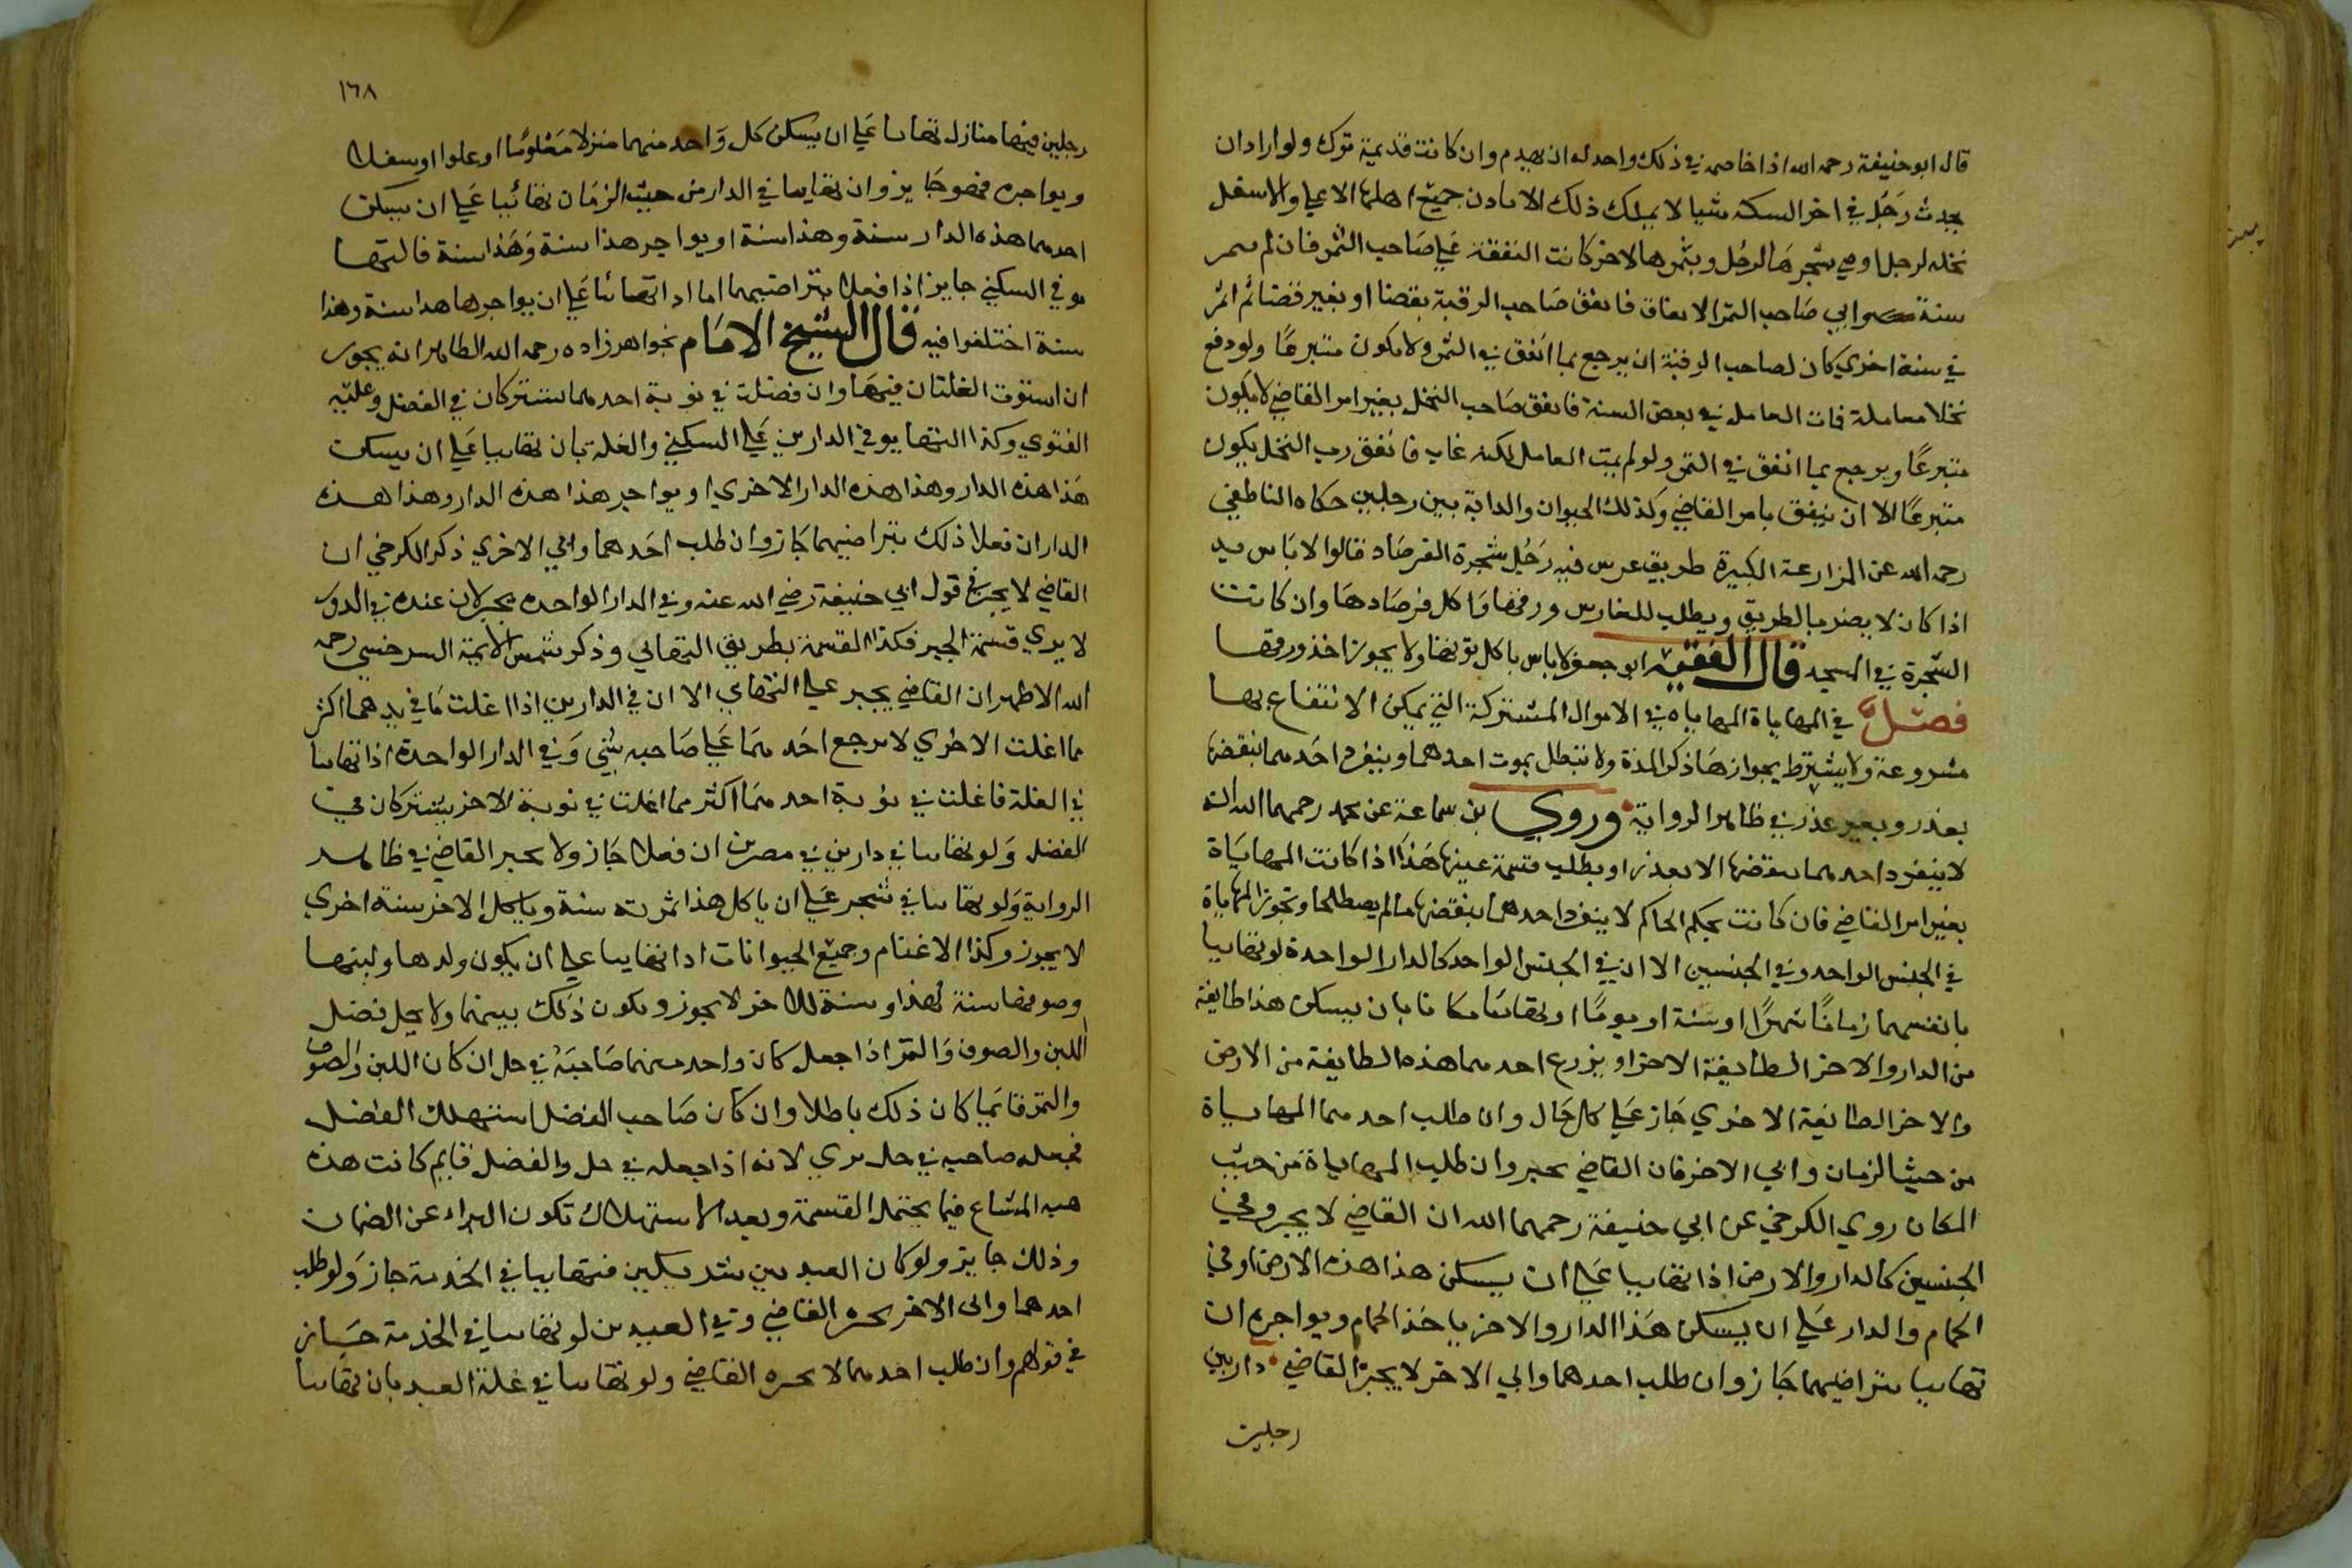 قال ابو حنيفة رحمه الله اذا خاصمه في ذلك واحد له ان يهدم وان كانت قديمة ترك ولو اراد ان
يحدث رجل في اخر السكة شيا لا يملك ذلك الا باذن جميع اهلها الاعلي والاسفل
نخلة لرجل اوصي بشجرها لرجل وبثمرها لاخر كانت النفقة علي صاحب الثمر فان لم يثمر
سنة وابي صاحب الثمر الانفاق فانفق صاحب الرقبة بقضا او بغير قضا ثم اثمر
في سنة اخري كان لصاحب الرقبة ان يرجع بما انفق في الثمر ولا يكون متبرعا ولو دفع
نخلا معاملة فمات العامل في بعض السنة فانفق صاحب النخل بغير امر القاضي لا يكون
متبرعا ويرجع بما انفق في الثمر ولو لم يمت العامل لكنه غاب فانفق رب النخل يكون
متبرعا الا ان ينفق بامر القاضي وكذلك الحيوان والدابة بين رجلين حكاه الناطفي
رحمه الله عن المزارعة الكبيرة طريق غرس فيه رجل شجرة الفرصاد قالوا لا باس به
اذا كان لا يضر بالطريق ويطلب للغارس ورقها واكل فرصادها وان كانت
الشجرة في المسجد قال الفقيه ابو جعفر لا باس باكل توتها ولا يجوز اخذ ورقها
فصل في المهاياة المهاياه في الاموال المشتركة التي يمكن الانتفاع بها
مشروعة ولا يشترط بجوازها ذكر المدة ولا تبطل بموت احدهما وينفرد احدهما بنقضها
بعذر وبغير عذر في ظاهر الرواية وروي بن سماعة عن محمد رحمهما الله انه
لا ينفرد احدهما بنقضها الا بعذر او يطلب قسمة عينها هذا اذا كانت المهاياة
بغير امر القاضي فان كانت بحكم الحاكم لا ينفرد احدهما بنقضها ما لم يصطلحا وتجوز المهاياة
في الجنس الواحد وفي الجنسين الا ان في الجنس الواحد كالدار الواحدة لو تهاييا
بانفسهما زمانا شهرا او سنة او يوما او تهاييا مكانا بان يسكن هذا طايفة
من الدار والاخر الطايفة الاخر او يزرع احدهما هذه الطايفة من الارض
والاخر الطايفة الاخري جاز علي كل حال وان طلب احدهما المهاياة
من حيث الزمان وابي الاخر فان القاضي يجبر وان طلب المهاياة من حيث
المكان روي الكرخي عن ابي حنيفة رحمهما الله ان القاضي لا يجبر وفي
الجنسين كالدار والارض اذا تهاييا علي ان يسكن هذا هذه الارض او في
الحمام والدار علي ان يسكن هذا الدار والاخر ياخذ الحمام ويواجره ان
تهاييا بتراضيهما جاز وان طلب احدهما وابي الاخر لا يجبر القاضي دار بين
رجلين
١٦٨
رجلين فيها منازل تهاييا علي ان يسكن كل واحد منهما منزلا معلوما او علوا او سفلا
ويواجره فهو جايز وان تهاييا في الدار من حيث الزمان تهائيا علي ان يسكن
احدهما هذه الدار سنة وهذا سنة او يواجر هذا سنة وهذا سنة فالتها
يو في السكني جايز اذا فعلا بتراضيهما اما اذا تهائيا علي ان يواجرها هذا سنة وهذا
سنة اختلفوا فيه قال الشيخ الامام بخواهر زاده رحمه الله الظاهر انه يجوز
ان استوت الغلتان فيها وان فضلت في نوبة احدهما يشتركان في الفضل وعليه
الفتوي وكذا التهايو في الدارين علي السكني والغلة بان تهاييا علي ان يسكن
هذا هذه الدار وهذا هذه الدار الاخري او يواجر هذا هذه الدار وهذا هذه
الدار ان فعلا ذلك بتراضيهما جاز وان طلب احدهما وابي الاخري ذكر الكرخي ان
القاضي لا يجبر في قول ابي حنيفة رضي الله عنه وفي الدار الواحدة يجبر لان عنده في الدور
لا يري قسمة الجبر فكذا القسمة بطريق التهايي وذكر شمس الايمة السرخسي رحمه
الله الاظهر ان القاضي يجبر علي التهاي الا ان في الدارين اذا اغلت ما في يد هما اكثر
مما اغلت الاخري لا يرجع احدهما علي صاحبه بشي وفي الدار الواحدة اذا تهاييا
في الغلة فاغلت في نوبة احدهما اكثر مما اغلت في نوبة الاخر يشتركان في
الفضل ولو تهاييا في دارين في مصرين ان فعلا جاز ولا يجبر القاضي في ظاهر
الرواية ولو تهاييا في شجر علي ان ياكل هذا ثمرته سنة وياكل الاخر سنة اخري
لا يجوز وكذا الاغنام وجميع الحيوانات اذا تهاييا علي ان يكون ولدها ولبنها
وصوفها سنة لهذا وسنة للاخر لا يجوز ويكون ذلك بينهما ولا يحل فضل
اللبن والصوف والثمر اذا جعل كان واحد منهما صاحبه في حل ان كان اللبن والصوف
والثمر قائما كان ذلك باطلا وان كان صاحب الفضل استهلك الفضل
فجعله صاحبه في حل بري لانه اذا جعله في حل والفضل قايم كانت هذه
هبه المشاع فيما يحتمل القسمة وبعد الاستهلاك تكون البراء عن الضمان
وذلك جايز ولو كان العبد بين شريكين فتهاييا في الخدمة جاز ولو طلب
احدهما وابي الاخر يجبره القاضي وفي العبدين لو تهاييا في الخدمة جاز
في قولهم وان طلب احدهما لا يجبره القاضي ولو تهاييا في غلة العبد بان تهاييا